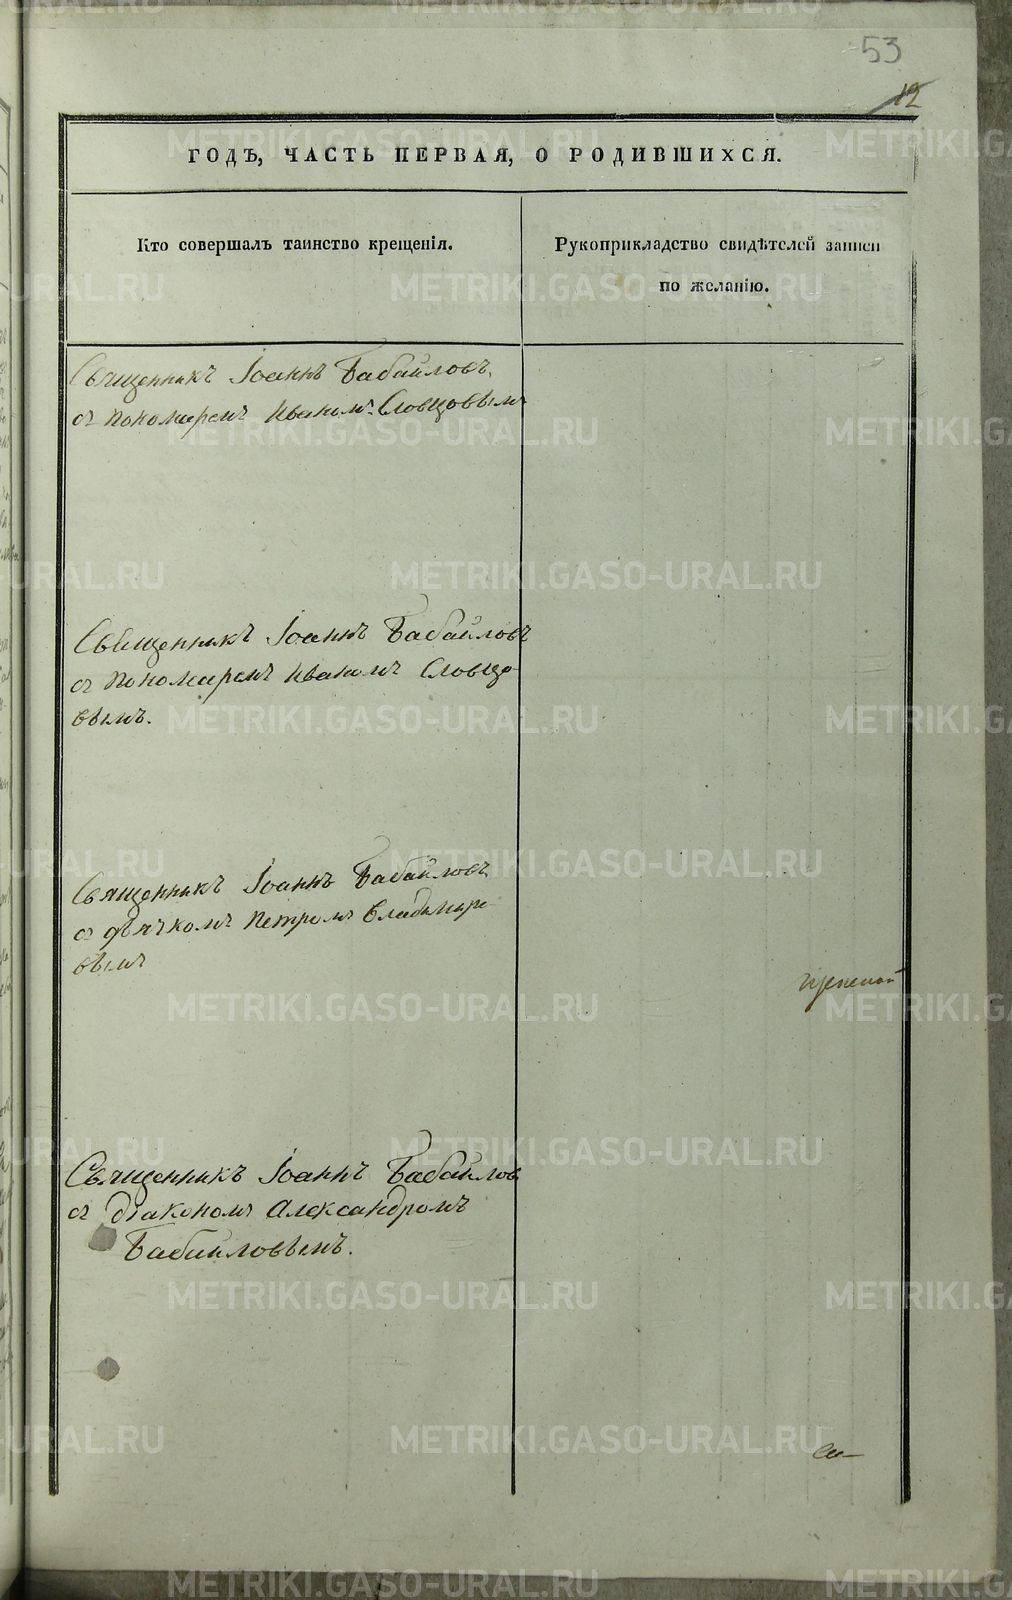 53
12
ГОДЪ, ЧАСТЬ ПЕРВАЯ, О РОДИВШИХСЯ.
Кто совершалъ таинство крещенія.
Рукоприкладство свидѣтелей записи
по желанію.
Священникъ Іоаннъ Бабайловъ,
съ пономаремъ Иваномъ Словцовымъ
Священникъ Іоаннъ Бабайловъ
съ пономаремъ Иваномъ Словцо-
вымъ.
Священникъ Іоаннъ Бабайловъ
съ дьячкомъ Петромъ Владимире-
вымъ
Священникъ Іоаннъ Бабайлов
съ діакономъ Александромъ
Бабайловымъ.
METRIKI.GASO-URAL.RU